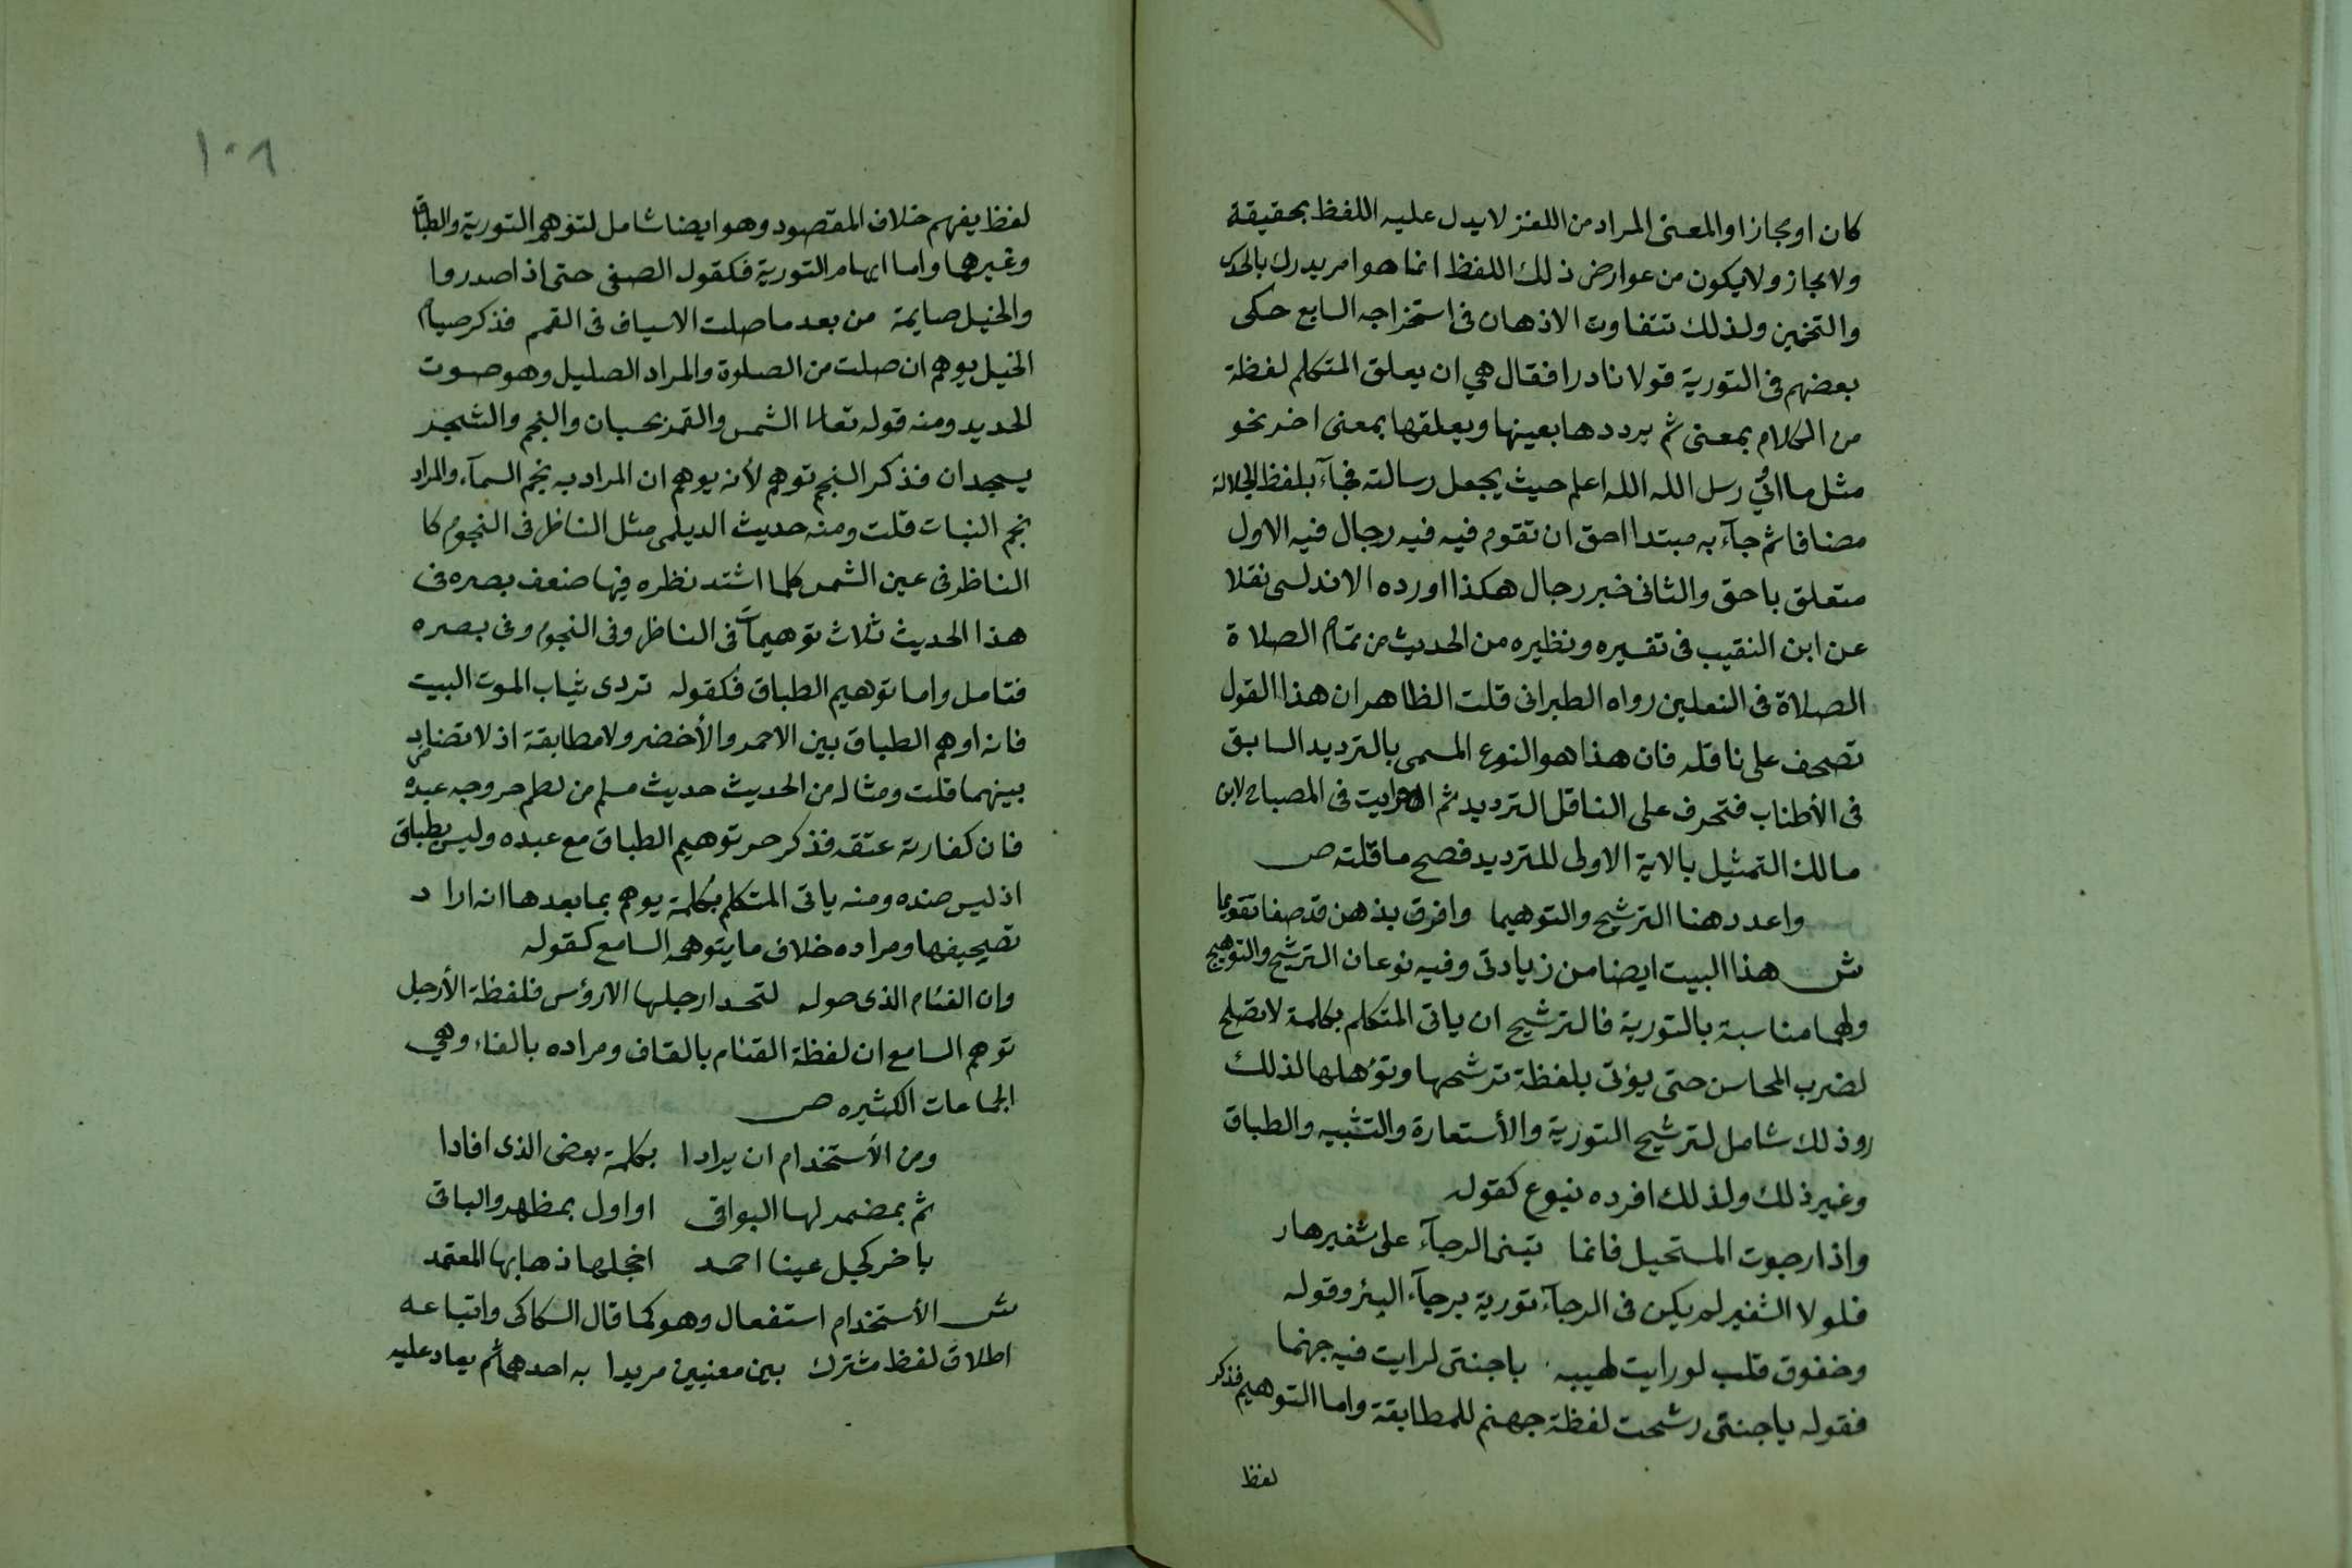 كان او مجازا والمعنى المراد من اللغز لا يدل عليه اللفظ بحقيقة
ولا مجاز ولا يكون من عوارض ذلك اللفظ انما هو امر يدرك بالحدس
والتخمين ولذلك تتفاوت الاذهان في استخراجه السابع حكى
بعضهم في التورية قولا نادرا فقال هي ان يعلق المتكلم لفظة
من الكلام بمعنى ثم يرددها بعينها ويعلقها بمعنى اخر نحو
مثل ما اوتي رسل الله الله اعلم حيث يجعل رسالته فجآء بلفظ الجلالة
مضافا ثم جآء به مبتدا احق ان تقوم فيه فيه رجال فيه الاول
متعلق باحق والثاني خبر رجال هكذا اورده الاندلسى نقلا
عن ابن النقيب في تفسيره ونظيره من الحديث من تمام الصلاة
الصلاة في النعلين رواه الطبراني قلت الظاهر ان هذا القول
تصحف على ناقله فان هذا هو النوع المسمى بالترديد السابق
في الأطناب فتحرف على الناقل الترديد ثم رايت في المصباح لابن
مالك التمثيل بالاية الاولى للترديد فصح ما قلته ص
واعدد هنا الترشيح والتوهيما وافرق بذهن قد صفا تقويما
ش هذا البيت ايضا من زيادتى وفيه نوعان الترشيح والتوهيم
ولهما مناسبة بالتورية فالترشيح ان ياتى المتكلم بكلمة لا تصلح
لضرب المحاسن حتى يؤتى بلفظة ترشحها وتؤهلها لذلك
وذلك شامل لترشيح التورية والأستعارة والتشبيه والطباق
وغير ذلك ولذلك افرده بنوع كقوله
واذا رجوت المستحيل فانما تبنى الرجآء على شفير هار
فلولا الشفير لم يكن في الرجآء تورية برجآء البئر وقوله
وخفوق قلب لو رايت لهيبه يا جنتى لرايت فيه جهنما
فقوله يا جنتى رشحت لفظة جهنم للمطابقة واما التوهيم فذكر
لفظ
١٠٨
لفظ يفهم خلاف المقصود وهو ايضا شامل لتوهم التورية والطباق
وغيرهما واما ايهام التورية فكقول الصفى حتى اذا صدروا
والخيل صايمة من بعد ما صلت الاسياف في القمم فذكر صيام
الخيل يوهم ان صلت من الصلوة والمراد الصليل وهو صوت
الحديد ومنه قوله تعالى الشمس والقمر بحسبان والنجم والشجر
يسجدان فذكر النجم توهم لأنه يوهم ان المراد به نجم السمآء والمراد
نجم النبات قلت ومنه حديث الديلمى مثل الناظر في النجوم كا
الناظر في عين الشمس كلما اشتد نظره فيها ضعف بصره في
هذا الحديث ثلاث توهيمات في الناظر وفي النجوم وفي بصره
فتامل واما توهيم الطباق فكقوله تردى ثياب الموت البيت
فانه اوهم الطباق بين الاحمر والأخضر ولا مطابقة اذ لا تضاد
بينهما قلت ومثاله من الحديث حديث مسلم من لطم حر وجه عبده
فان كفارته عتقه فذكر حر توهيم الطباق مع عبده وليس بطباق
اذ ليس ضده ومنه ياتى المتكلم بكلمة يوهم بما بعدها انه اراد
تصحيفها ومراده خلاف ما يتوهمه السامع كقوله
وان الفئام الذى حوله لتحسد ارجلها الارؤس فلفظة الأرجل
توهم السامع ان لفظة القئام بالقاف ومراده بالفاء وهي
الجماعات الكثيره ص
ومن الأستخدام ان يرادا بكلمة بعض الذى افادا
ثم بمضمر لها البواقى او اول بمظهر والباقى
باخر كجل عينا احمد اخجلها ذهابها المعتمد
ش الأستخدام استفعال وهو كما قال السكاكى واتباعه
اطلاق لفظ مشترك بين معنيين مريدا به احدهما ثم يعاد عليه